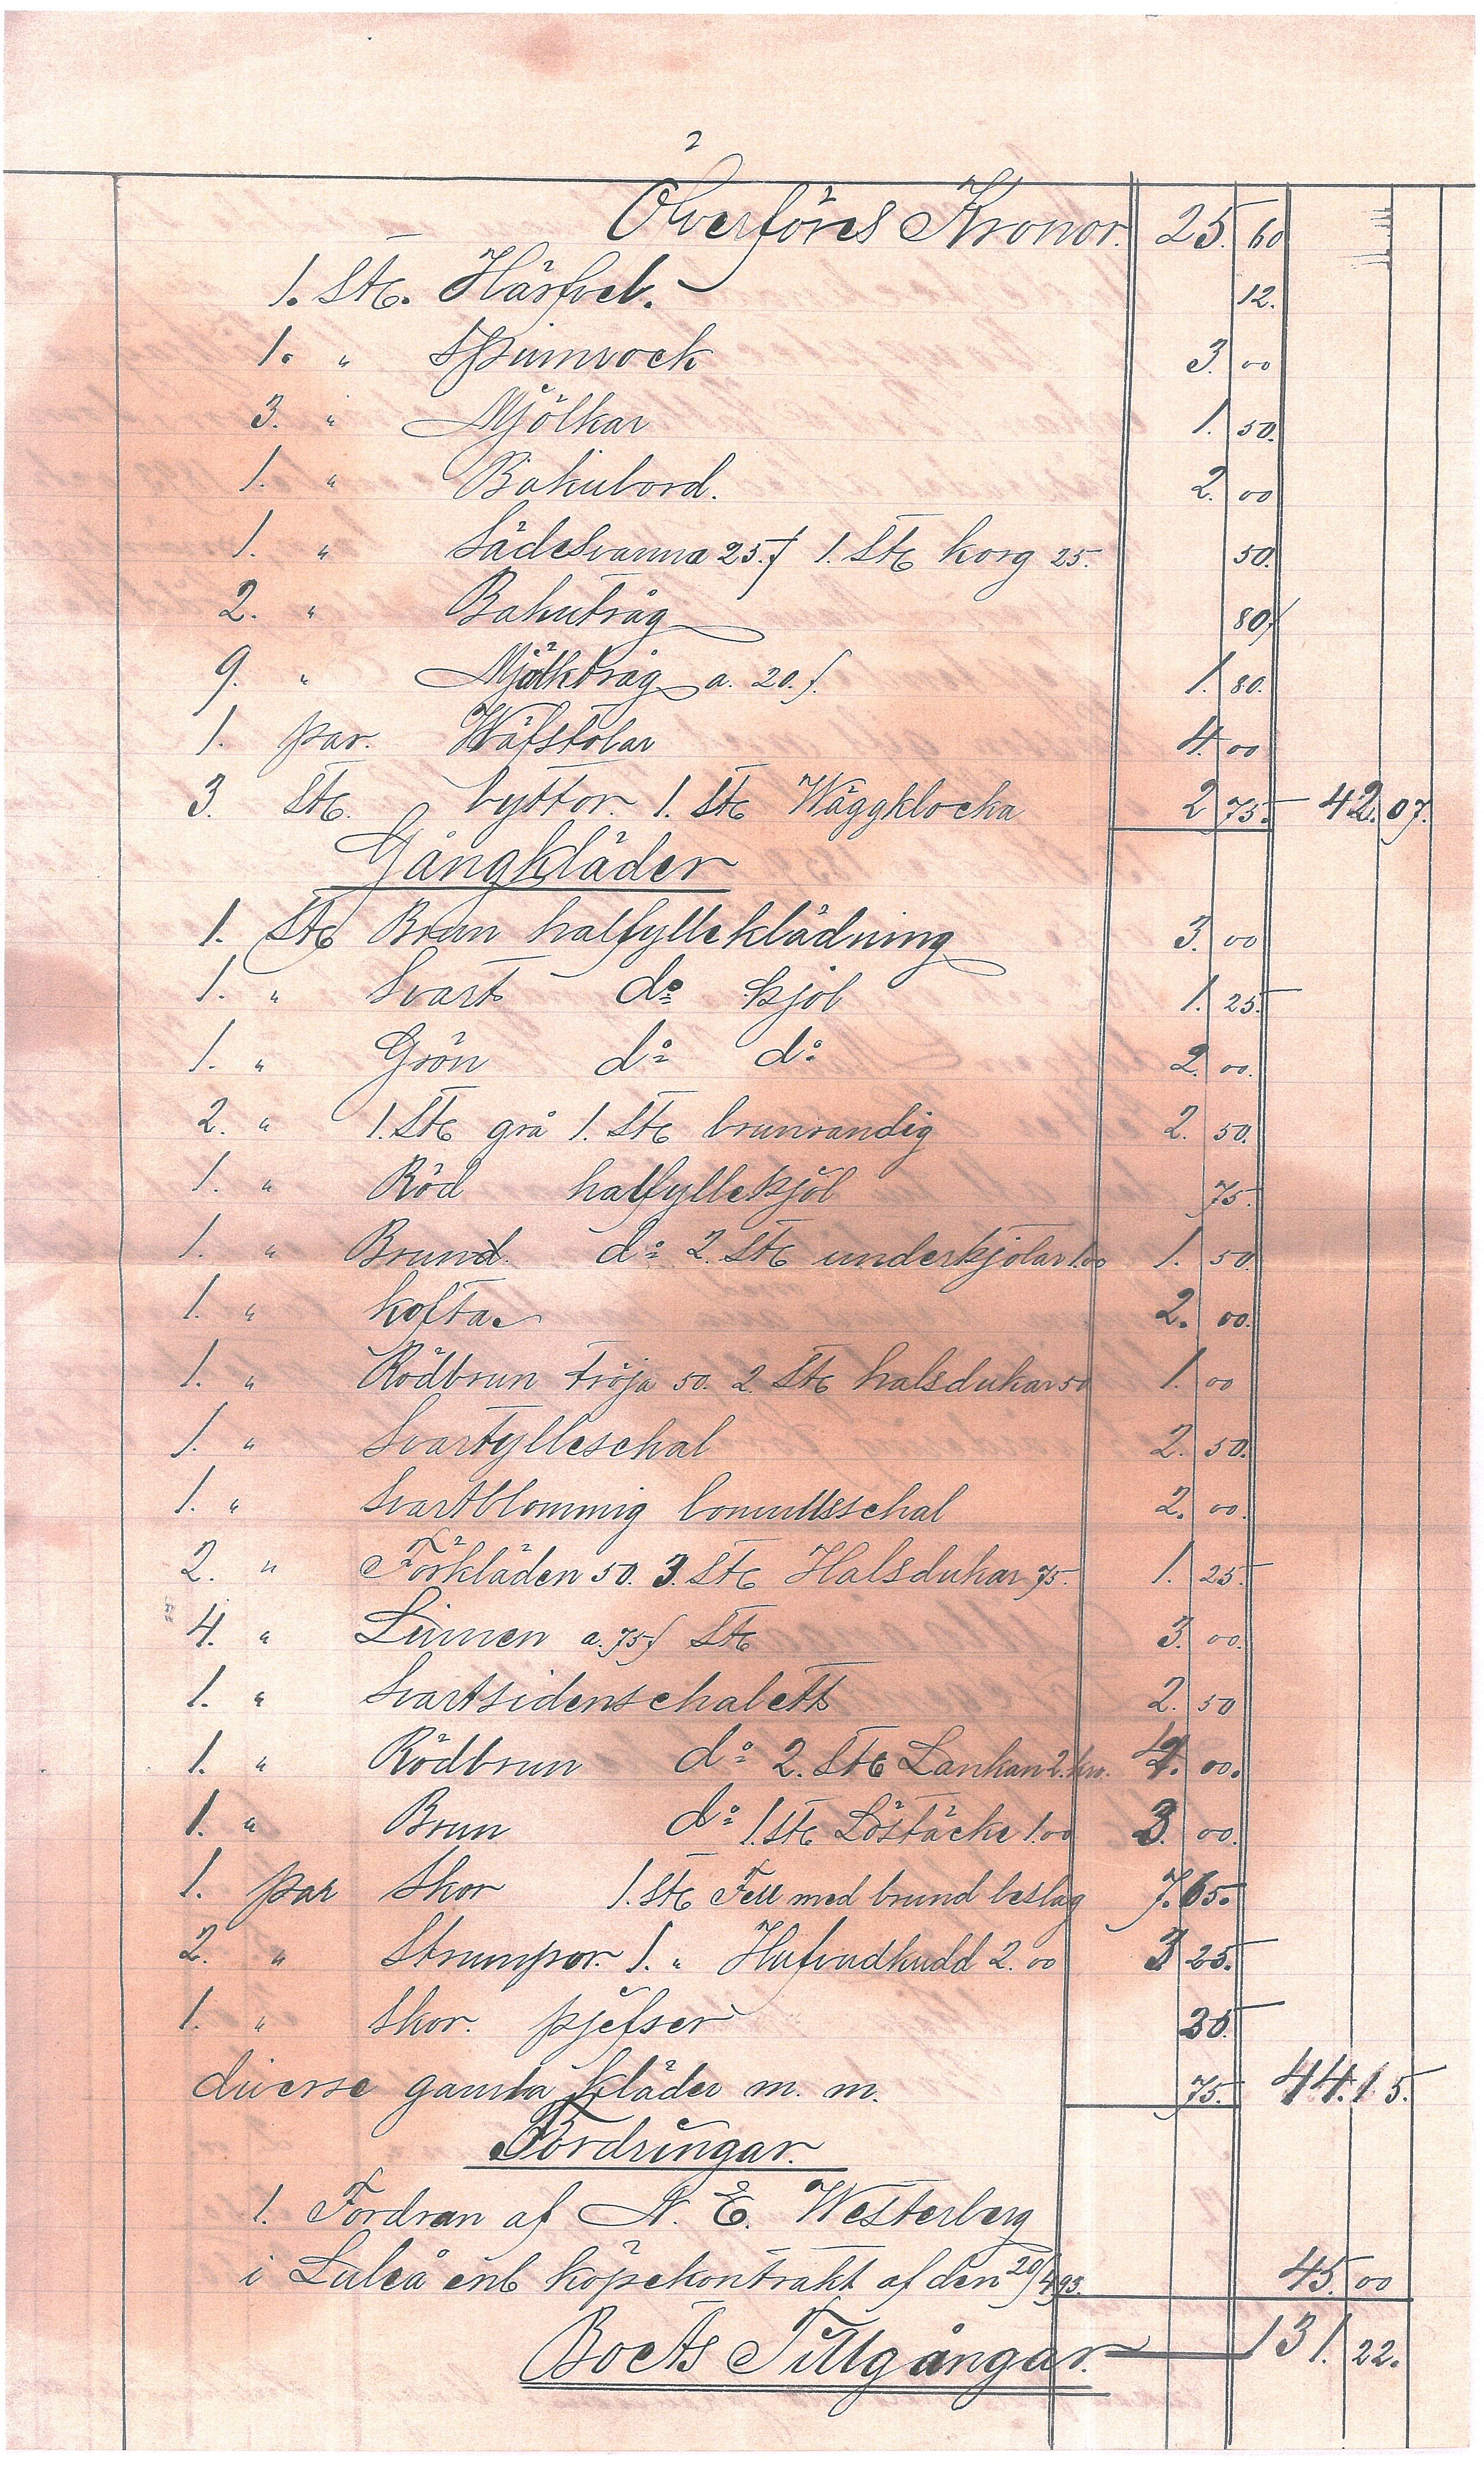 2
Överföres Kronor. 25. 60
1. St. Härfvel. 12.
1. " Spinnrock 3. 00
3. " Mjölkar 1. 50.
1. " Bakubord. 2. 00
1. " Sädesvanna 25.f 1. St. korg 25. 50.
2. " Bakutråg 80f
9. " Mjölktråg a. 20.f. 1. 80.
1. par. Wäfstolar 4. 00
3. St. byttor. 1. St. Wäggklocka 2 75. 42. 07.
Gångkläder
1. St. Brun halfylleklädning 3. 00
1. " Svart do kjol 1. 25.
1. " Grön do do 2. 00.
2. " 1. St. grå 1. St. brunrandig 2. 50.
1. " Röd halfyllekjol 75.
1. " Brund. do 2. St. underkjolar 1.00 1. 50.
1. " kofta. 2. 00.
1. " Rödbrun tröja 50. 2. St. halsdukar 50 1. 00
1. " Svartylleschal 2. 50.
1. " Svartblommig bomullsschal 2. 00.
2. " Förkläden 50. 3. St. Halsdukar 75. 1. 25.
4. " Linnen a. 75f St. 3. 00.
1. " Svartsidenschalett 2. 50
1. " Rödbrun do 2. St. Lankan 2. kr. 4. 00.
1. " Brun do 1. St. Löstäcke 1.00 3. 00.
1. par Skor 1. St. Fell med brund beslag 7. 65.
2. " Strumpor. 1. " Hufvudkudd 2. 00 3 25.
1. " Skor. pjefser
diverse gamla kläder m. m. 75. 44. 15.
Fordringar.
1. Fordran af N. E. Westerberg
i Luleå enl köpekontrakt af den 20/4 93. 45. 00
Boets Tillgångar. 131. 22.